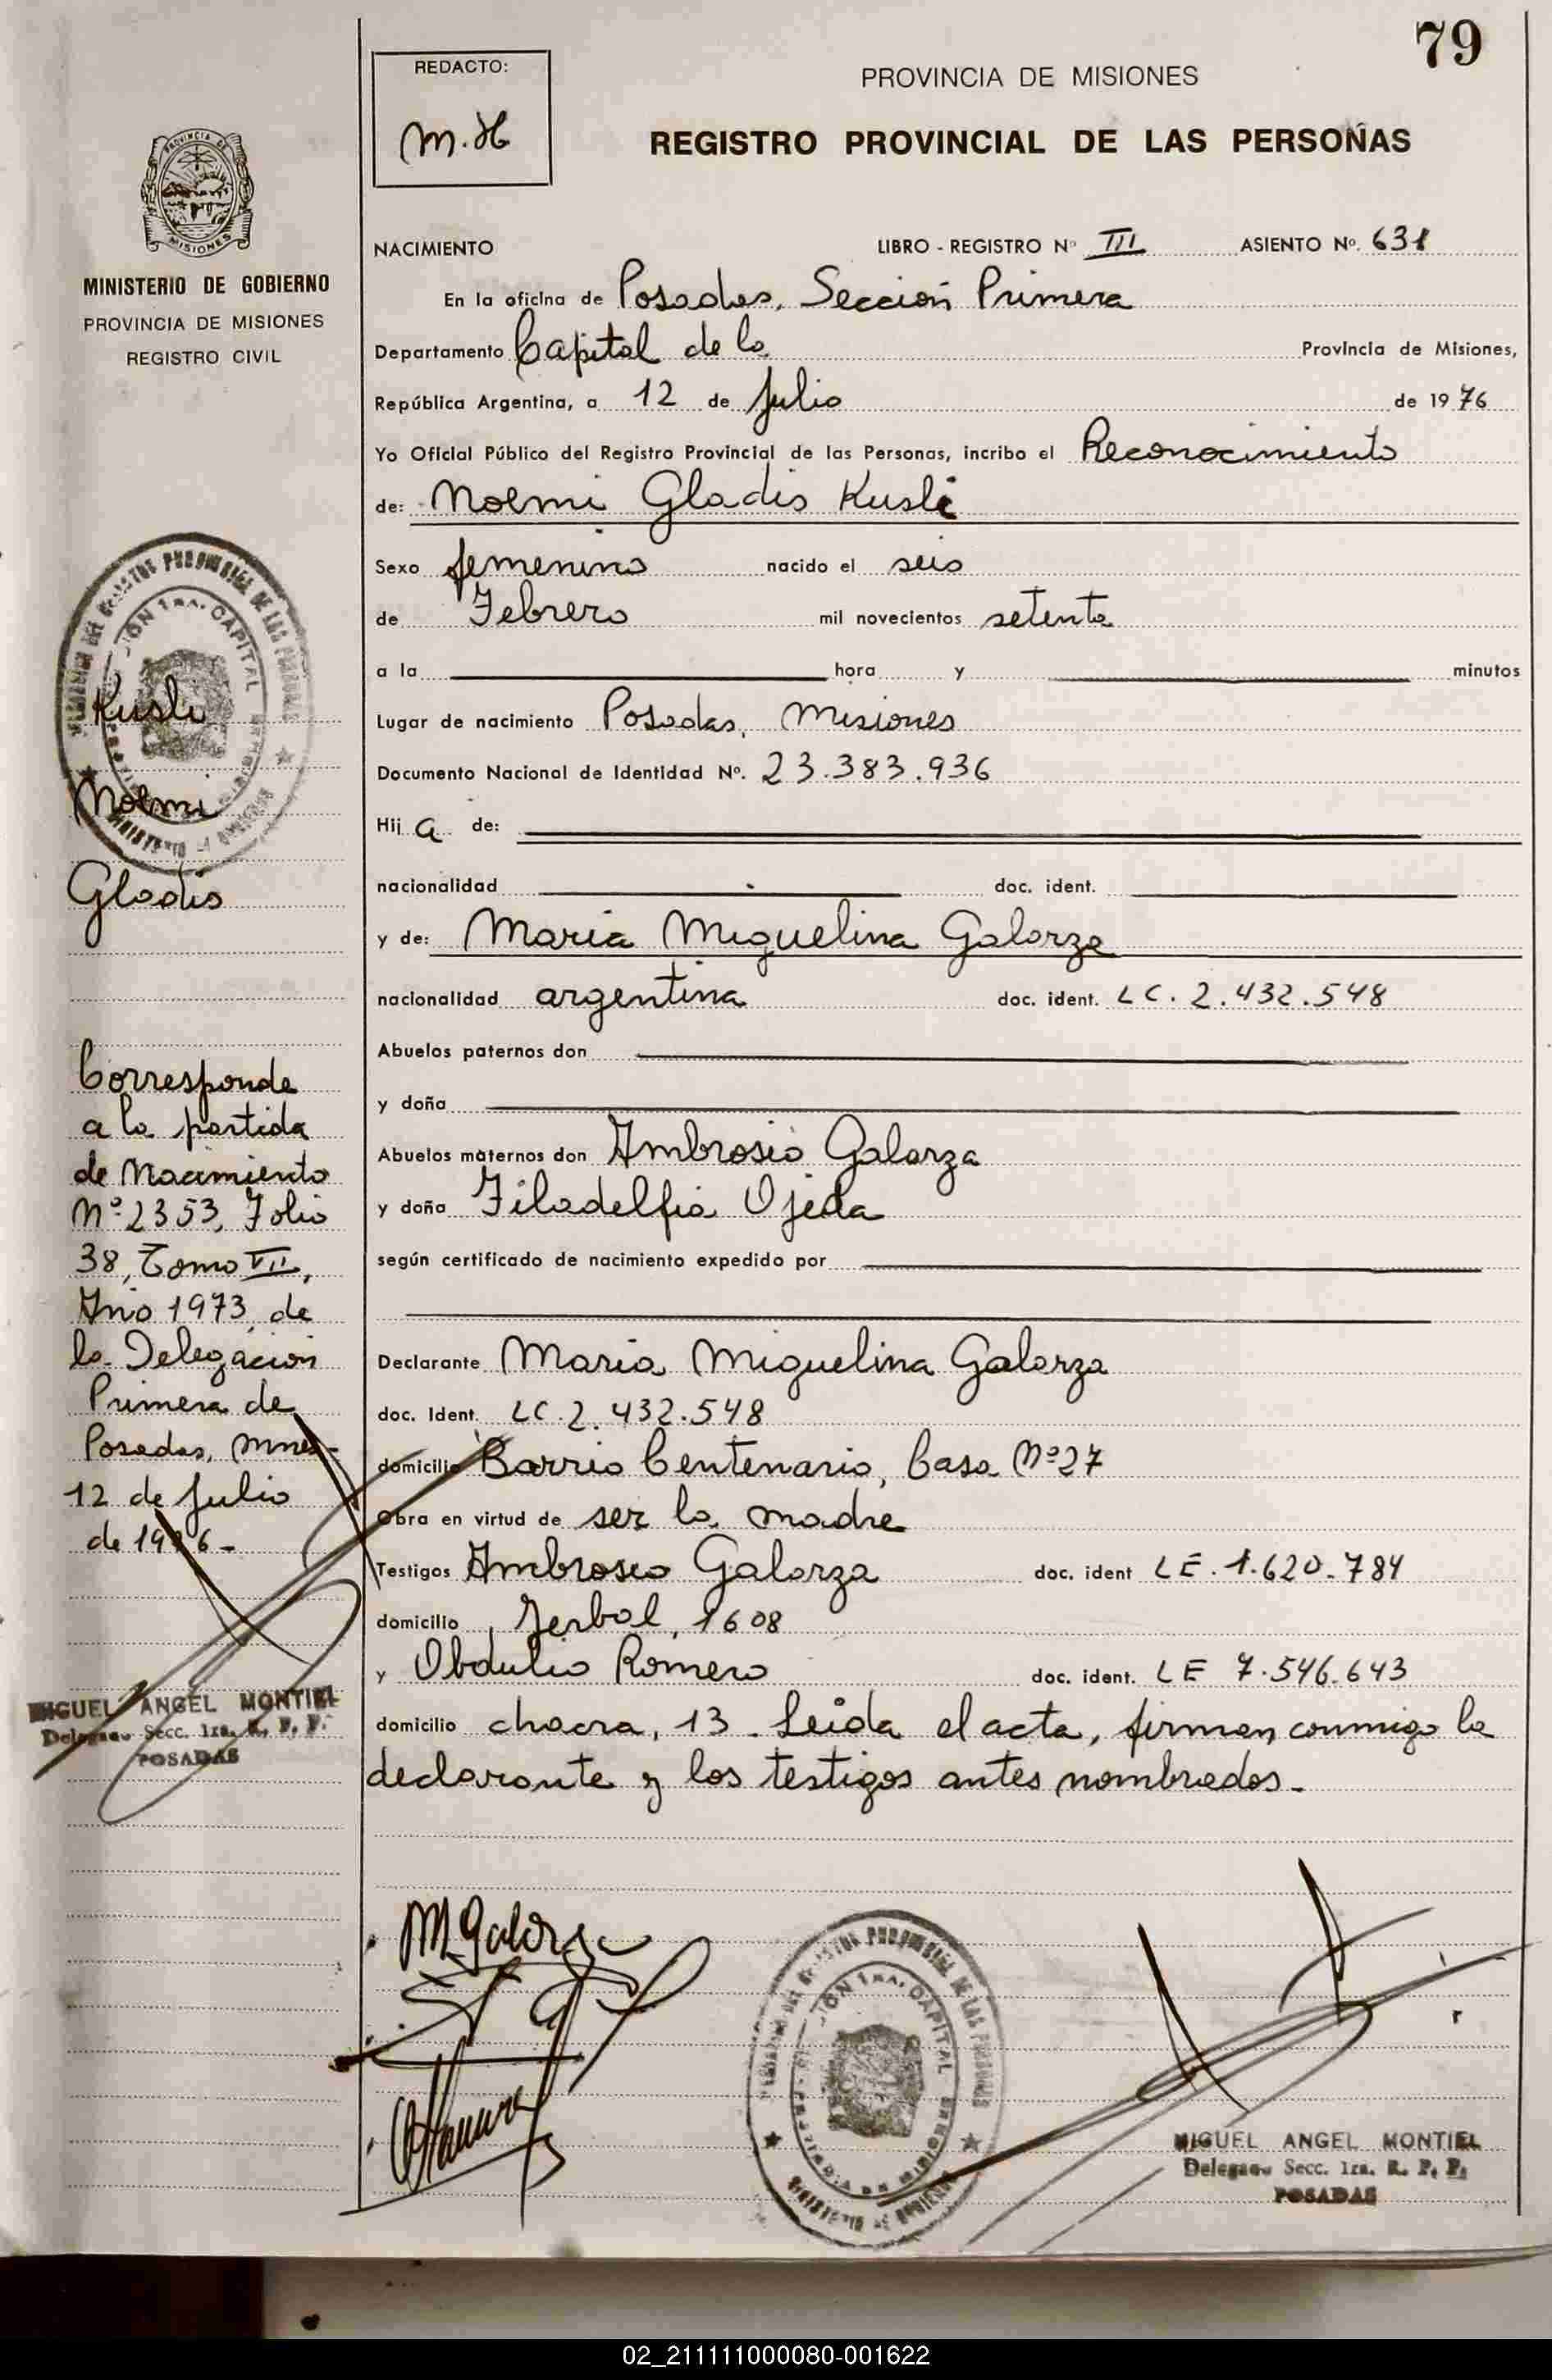 79
REDACTO:
M.H
PROVINCIA DE MISIONES
REGISTRO PROVINCIAL DE LAS PERSONAS
PROVINCIA DE
MISIONES
MINISTERIO DE GOBIERNO
PROVINCIA DE MISIONES
REGISTRO CIVIL
NACIMIENTO LIBRO - REGISTRO Nº III ASIENTO Nº. 631
En la oficina de Posadas, Sección Primera
Departamento Capital de la Provincia de Misiones,
República Argentina, a 12 de Julio de 1976
Yo Oficial Público del Registro Provincial de las Personas, incribo el Reconocimiento
de: Noemi Gladis Kusli
Sexo femenino nacido el seis
de Febrero mil novecientos setenta
a la hora y minutos
Lugar de nacimiento Posadas, Misiones
Documento Nacional de Identidad Nº. 23.383.936
Hij a de:
nacionalidad doc. ident.
y de: Maria Miguelina Galarza
nacionalidad argentina doc. ident. LC. 2.432.548
Abuelos paternos don
y doña
Abuelos maternos don Ambrosio Galarza
y doña Filadelfia Ojeda
según certificado de nacimiento expedido por
Declarante Maria Miguelina Galarza
doc. Ident. LC. 2.432.548
domicilio Barrio Centenario, Casa Nº 27
Obra en virtud de ser la madre
Testigos Ambrosio Galarza doc. ident LE. 1.620.784
domicilio Yerbal, 1608
y Obdulio Romero doc. ident. LE 7.546.643
domicilio chacra, 13. Leida el acta, firman conmigo la
declarante y los testigos antes nombrados.
Kusli
Noemi
Gladis
Corresponde
a la partida
de Nacimiento
Nº 2353, Folio
38, Tomo VII,
Año 1973, de
la Delegación
Primera de
Posadas, Mnes-
12 de Julio
de 1976-
MIGUEL ANGEL MONTIEL
Delegado Secc. 1ra. R. P. P.
POSADAS
M Galarza
MIGUEL ANGEL MONTIEL
Delegado Secc. 1ra. R. P. P.
POSADAS
02_211111000080-001622